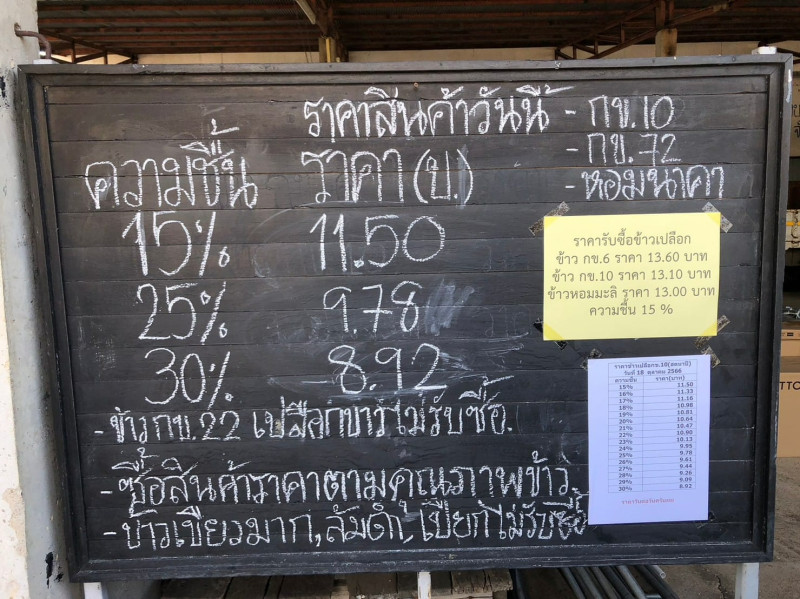 ราคาสินค้าวันนี้ - กข.10
- กข.72
- หอมนาคา
ความชื้น ราคา (บ.)
15% 11.50
25% 9.78
30% 8.92
- ข้าว กข.22 เปลือกขาวไม่รับซื้อ.
- ซื้อสินค้าราคาตามคุณภาพข้าว
- ข้าวเขียวมาก, ล้มดำ, เปียกไม่รับซื้อ
ราคารับซื้อข้าวเปลือก
ข้าว กข.6 ราคา 13.60 บาท
ข้าว กข.10 ราคา 13.10 บาท
ข้าวหอมมะลิ ราคา 13.00 บาท
ความชื้น 15 %
วันที่ 18 ตุลาคม 2566
ความชื้น ราคา(บาท)
15% 11.50
16% 11.33
17% 11.16
18% 10.98
19% 10.81
20% 10.64
21% 10.47
22% 10.90
23% 10.13
24% 9.95
25% 9.78
26% 9.61
27% 9.44
28% 9.26
29% 9.09
30% 8.92